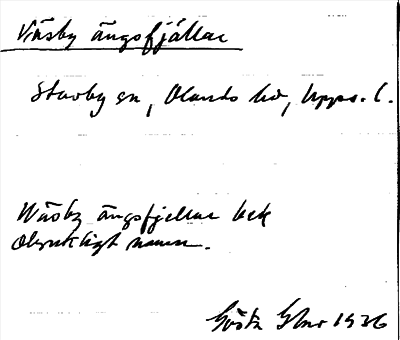 Väsby ängsfjällar
Stavby sn, Olands hd, Upps. l.
Wäsby ängsfjellar bek
Olyckligt namn.
Gösta 1936